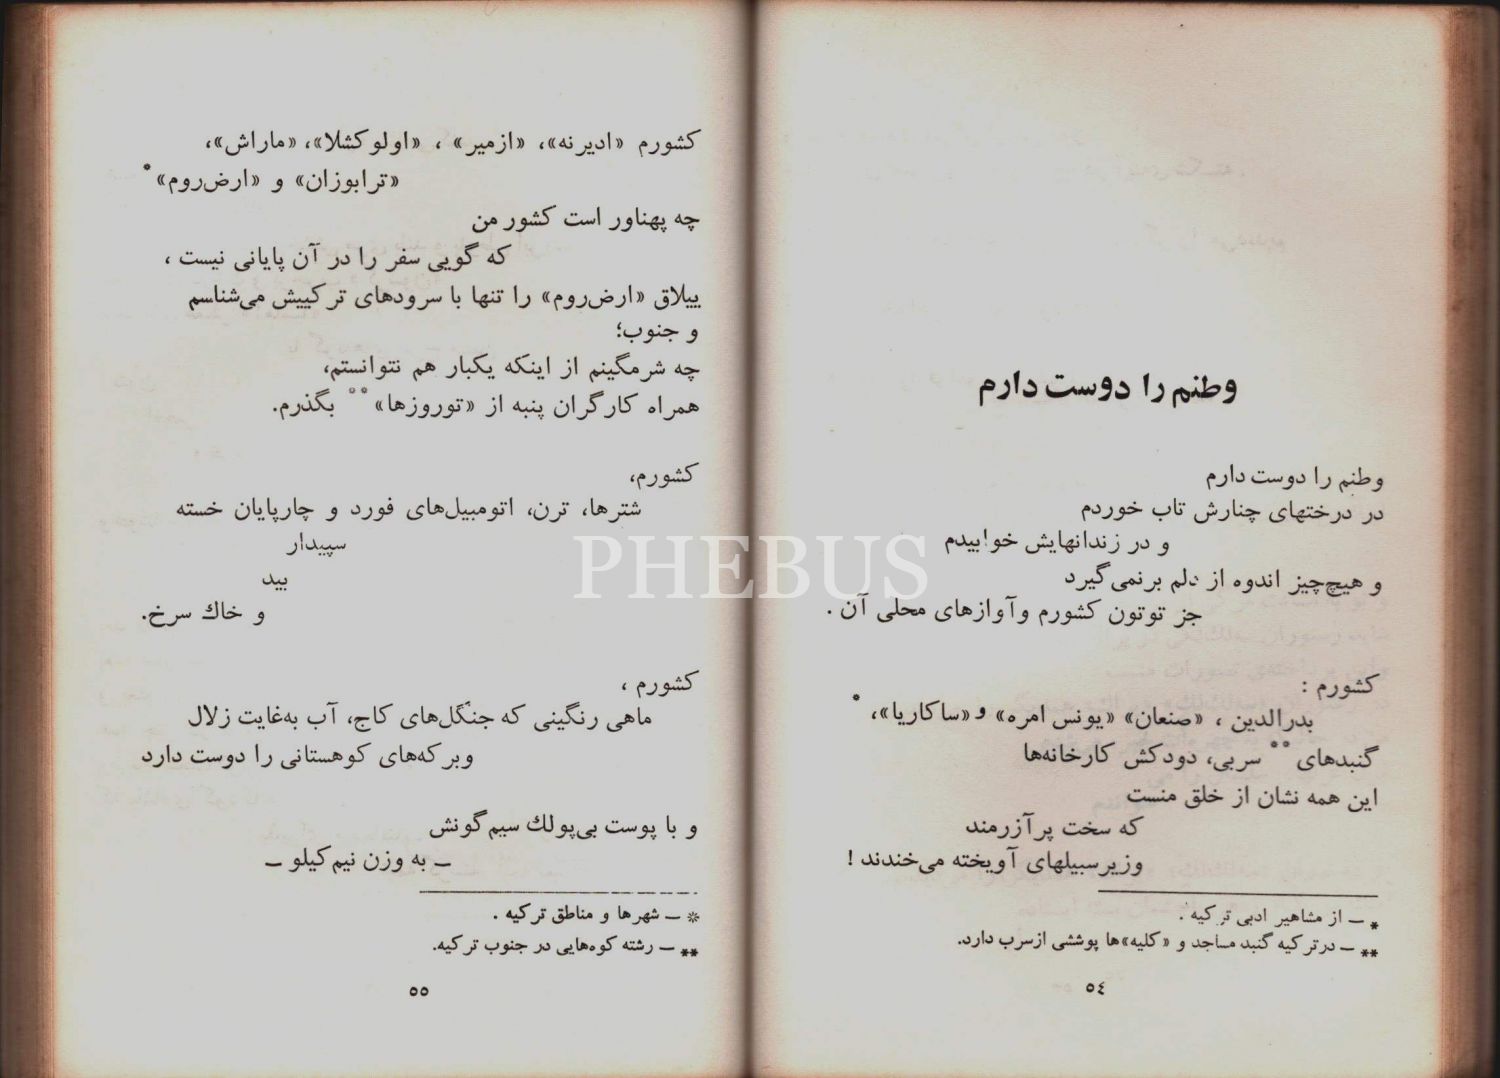 وطنم را دوست دارم
وطنم را دوست دارم
در درختهای چنارش تاب خوردم
و در زندانهایش خوابیدم
و هیچ‌چیز اندوه از دلم برنمی‌گیرد
جز توتون کشورم وآوازهای محلی آن .
کشورم :
بدرالدین ، «صنعان» «یونس امره» و«ساکاریا»، *
گنبدهای ** سربی، دودکش کارخانه‌ها
این همه نشان از خلق منست
که سخت پرآزرمند
وزیرسبیلهای آویخته می‌خندند !
* — از مشاهیر ادبی ترکیه .
** — درترکیه گنبد مساجد و «کلیه»ها پوششی ازسرب دارد.
٥٤
کشورم «ادیرنه»، «ازمیر» ، «اولوکشلا»، «ماراش»،
«ترابوزان» و «ارض‌روم» *
چه پهناور است کشور من
که گویی سفر را در آن پایانی نیست ،
ییلاق «ارض‌روم» را تنها با سرودهای ترکییش می‌شناسم
و جنوب؛
چه شرمگینم از اینکه یکبار هم نتوانستم،
همراه کارگران پنبه از «توروزها» ** بگذرم.
کشورم،
شترها، ترن، اتومبیل‌های فورد و چارپایان خسته
سپیدار
بید
و خاك سرخ.
کشورم ،
ماهی رنگینی که جنگل‌های کاج، آب به‌غایت زلال
وبرکه‌های کوهستانی را دوست دارد
و با پوست بی‌پولك سیم‌گونش
— به وزن نیم‌کیلو —
* — شهرها و مناطق ترکیه .
** — رشته کوه‌هایی در جنوب ترکیه.
٥٥
PHEBUS